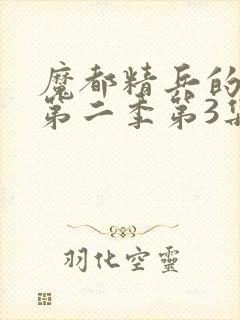 魔都精兵的
第二季第3集
羽化空靈